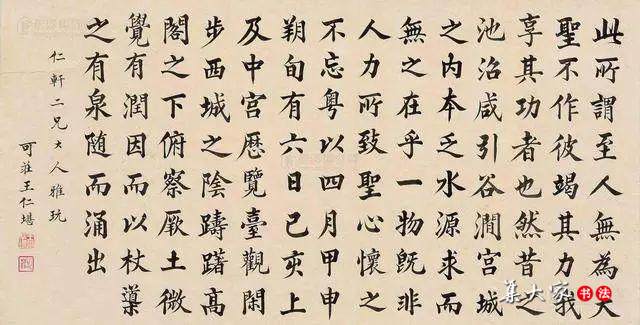 此所謂至人無為大
聖不作彼竭其力我
享其功者也然昔之
池沼咸引谷澗宮城
之內本乏水源求而
無之在乎一物旣非
人力所致聖心懷之
不忘粵以四月甲申
朔旬有六日己亥上
及中宮歷覽臺觀閑
步西城之陰躊躇高
閣之下俯察厥土微
覺有潤因而以杖導
之有泉隨而涌出
仁軒二兄大人雅玩
可莊王仁堪
集大家 书法